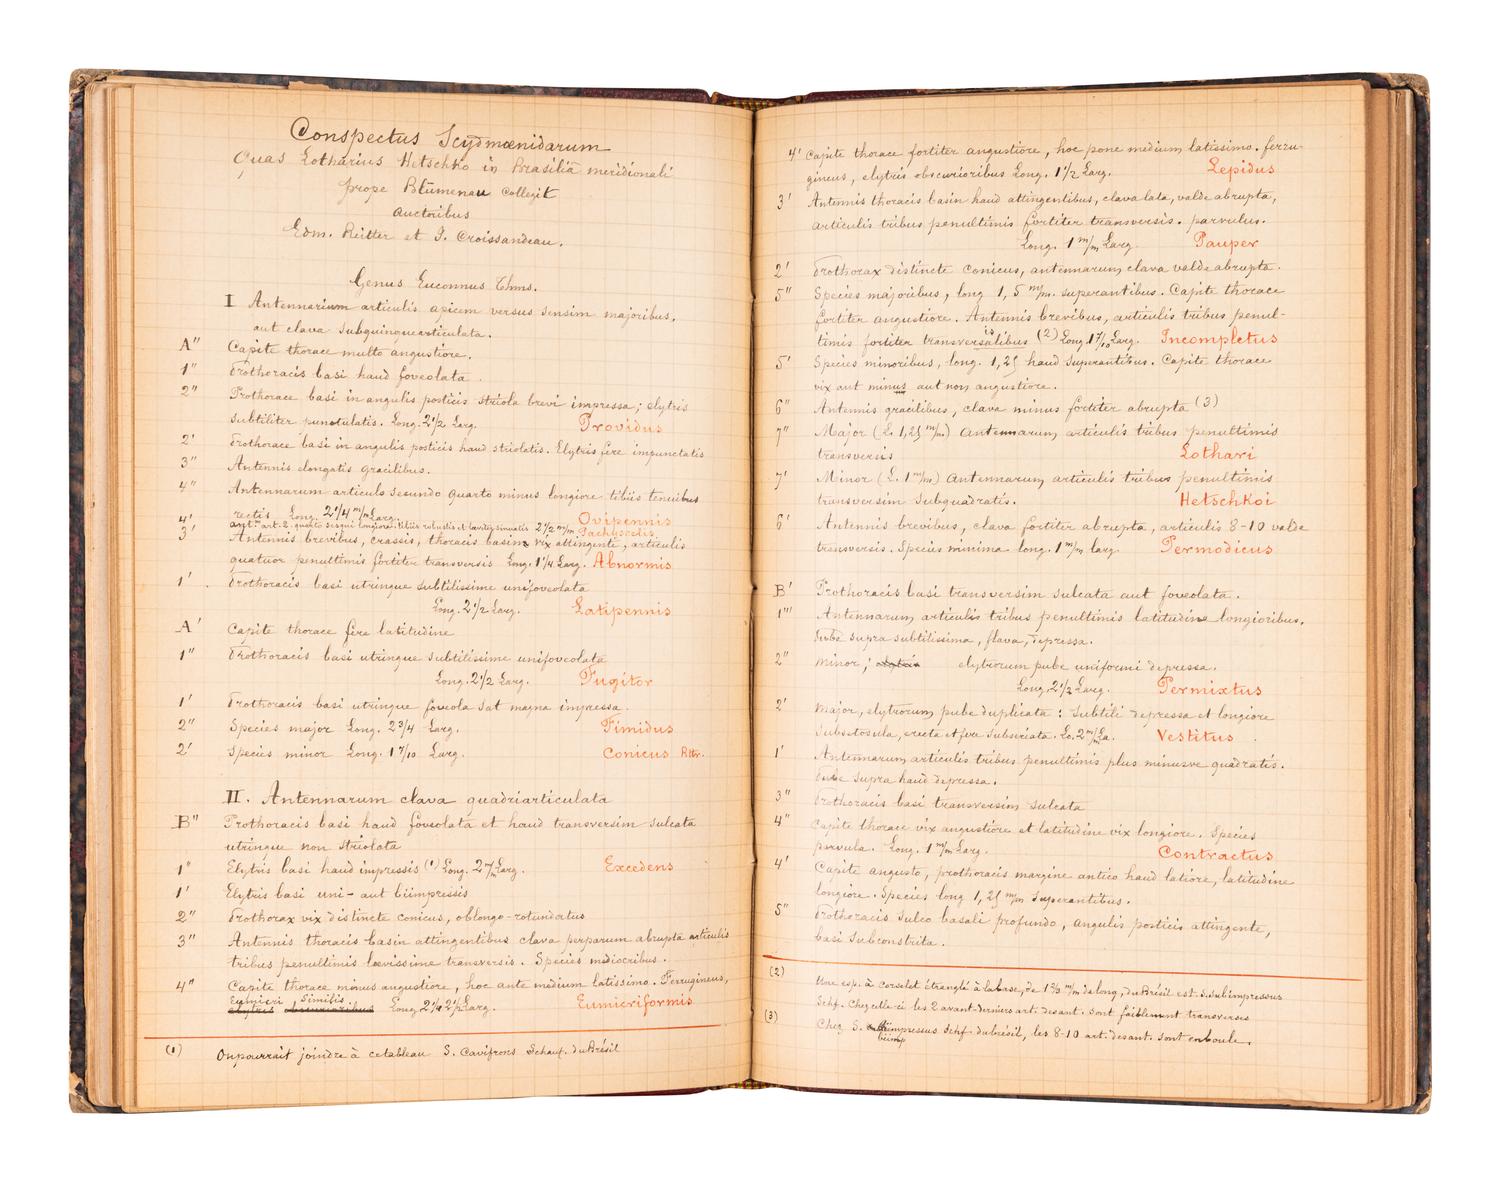 Conspectus Scydmœnidarum
Quas Lotharius Hetschko in Brasiliâ meridionali
prope Blumenau collegit
auctoribus
Edm. Reitter et J. Croissandeau.
Genus Euconnus Thms.
I Antennarium articulis apicem versus sensim majoribus,
aut clava subquinquearticulata.
A" Capite thorace multo angustiore.
1" Prothoracis basi haud foveolata.
2" Prothorace basi in angulis posticis striola brevi impressa; elytris
subtiliter punctulatis. Long. 2 1/2 Larg. Providus
2' Prothorace basi in angulis posticis haud striolatis. Elytris fere impunctatis
3" Antennis elongatis gracilibus.
4" Antennarum articulo secundo quarto minus longiore tibiis tenuibus
rectis Long. 2 1/4 m/m Larg. Ovipennis
4' antm art. 2. quarto sesqui longiore. tibiis robustis et leviter sinuatis 2 1/2 m/m Pachyscelis
3' Antennis brevibus, crassis, thoracis basim vix attingente, articulis
quatuor penultimis fortiter transversis Long. 1 1/4 Larg. Abnormis
1' Prothoracis basi utrinque subtilissime unifoveolata
Long. 2 1/2 Larg. Latipennis
A' Capite thorace fere latitudine
1" Prothoracis basi utrinque subtilissime unifoveolata
Long. 2 1/2 Larg. Fugitor
1' Prothoracis basi utrinque foveola sat magna impressa.
2" Species major Long. 2 3/4 Larg. Timidus
2' Species minor Long. 1 7/10 Larg. Conicus Rttr.
II. Antennarum clava quadriarticulata
B" Prothoracis basi haud foveolata et haud transversim sulcata
utrinque non striolata
1" Elytris basi haud impressis (1) Long. 2 m/m Larg. Excedens
1' Elytris basi uni- aut biimpressis
2" Prothorax vix distincte conicus, oblongo-rotundatus
3" Antennis thoracis basin attingentibus clava perparum abrupta articulis
tribus penultimis lœvissime transversis. Species mediocribus.
4" Capite thorace minus angustiore, hoc ante medium latissimo. Ferrugineus,
Eumicri similis
elytris obscurioribus Long. 2 1/4 2 1/2 Larg. Eumicriformis
(1) On pourrait joindre à ce tableau S. Cavifrons Schauf. du Brésil
4' Capite thorace fortiter angustiore, hoc pone medium latissimo. ferru-
gineus, elytris obscurioribus Long. 1 1/2 Larg. Lepidus
3' Antennis thoracis basin haud attingentibus, clava lata, valde abrupta,
articulis tribus penultimis fortiter transversis. parvulus.
Long. 1 m/m Larg. Pauper
2' Prothorax distincte conicus, antennarum clava valde abrupta.
5" Species majoribus, long 1, 5 m/m. superantibus. Capite thorace
fortiter angustiore. Antennis brevibus, articulis tribus penul-
timis fortiter transversalibus (2) Long. 1 7/10 Larg. Incompletus
5' Species minoribus, long. 1,25 haud superantibus. Capite thorace
vix aut minus aut non angustiore.
6" Antennis gracilibus, clava minus fortiter abrupta (3)
7" Major (L. 1,25 m/m) antennarum articulis tribus penultimis
transversis Lothari
7' Minor (L. 1 m/m) antennarum articulis tribus penultimis
transversim subquadratis. Hetschkoi
6' Antennis brevibus, clava fortiter abrupta, articulis 8-10 valde
transversis. Species minima long. 1 m/m larg. Permodicus
B' Prothoracis basi transversim sulcata aut foveolata.
1"' Antennarum articulis tribus penultimis latitudine longioribus.
Pube supra subtilissima, flava, depressa.
2" minor; elytris elytrorum pube uniformi depressa.
Long. 2 1/2 Larg. Permixtus
2' major, elytrorum pube duplicata : subtili depressa et longiore
subsetosula, erecta et fere subseriata. Lo. 2 m/m La. Vestitus.
1' Antennarum articulis tribus penultimis plus minusve quadratis.
Pube supra haud depressa.
3" Prothoracis basi transversim sulcata
4" Capite thorace vix angustiore et latitudine vix longiore. Species
parvula. Long. 1 m/m Larg. Contractus
4' Capite angusto, prothoracis margine antico haud latiore, latitudine
longiore. Species long 1,25 m/m superantibus.
5" Prothoracis sulco basali profundo, angulis posticis attingente,
basi subconstrita.
(2) Une esp. à corselet étranglé à la base, de 1 2/3 m/m de long, du Brésil est S. subimpressus
Schf. Chez celle-ci les 2 avant-derniers art. des ant. sont faiblement transverses
(3) Chez S. biimpressus Schf. du Brésil, les 8-10 art. des ant. sont en boule.
biimp